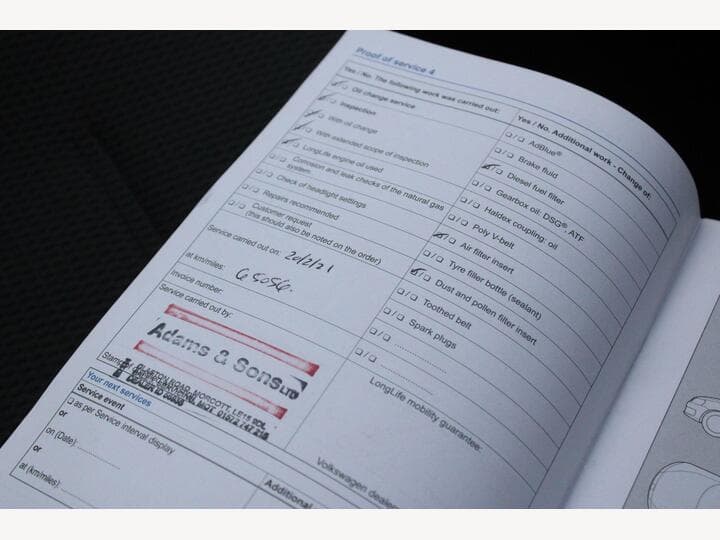 Proof of service 4
Yes / No. The following work was carried out:
Oil change service
Inspection
With oil change
With extended scope of inspection
LongLife engine oil used
Corrosion and leak checks of the natural gas
system
Check of headlight settings
Repairs recommended
Customer request
(this should also be noted on the order)
Service carried out on: 20/2/21
at km/miles: 65056.
Invoice number:
Service carried out by:
Adams & Sons LTD
MORCOTT, LE15 9DL
Stamp
Yes / No. Additional work - Change of:
AdBlue®
Brake fluid
Diesel fuel filter
Gearbox oil: DSG®, ATF
Haldex coupling: oil
Poly V-belt
Air filter insert
Tyre filler bottle (sealant)
Dust and pollen filter insert
Toothed belt
Spark plugs
LongLife mobility guarantee:
Volkswagen dealer
Your next services
Service event
as per Service interval display
or
on (Date):
or
at (km/miles):
Additional